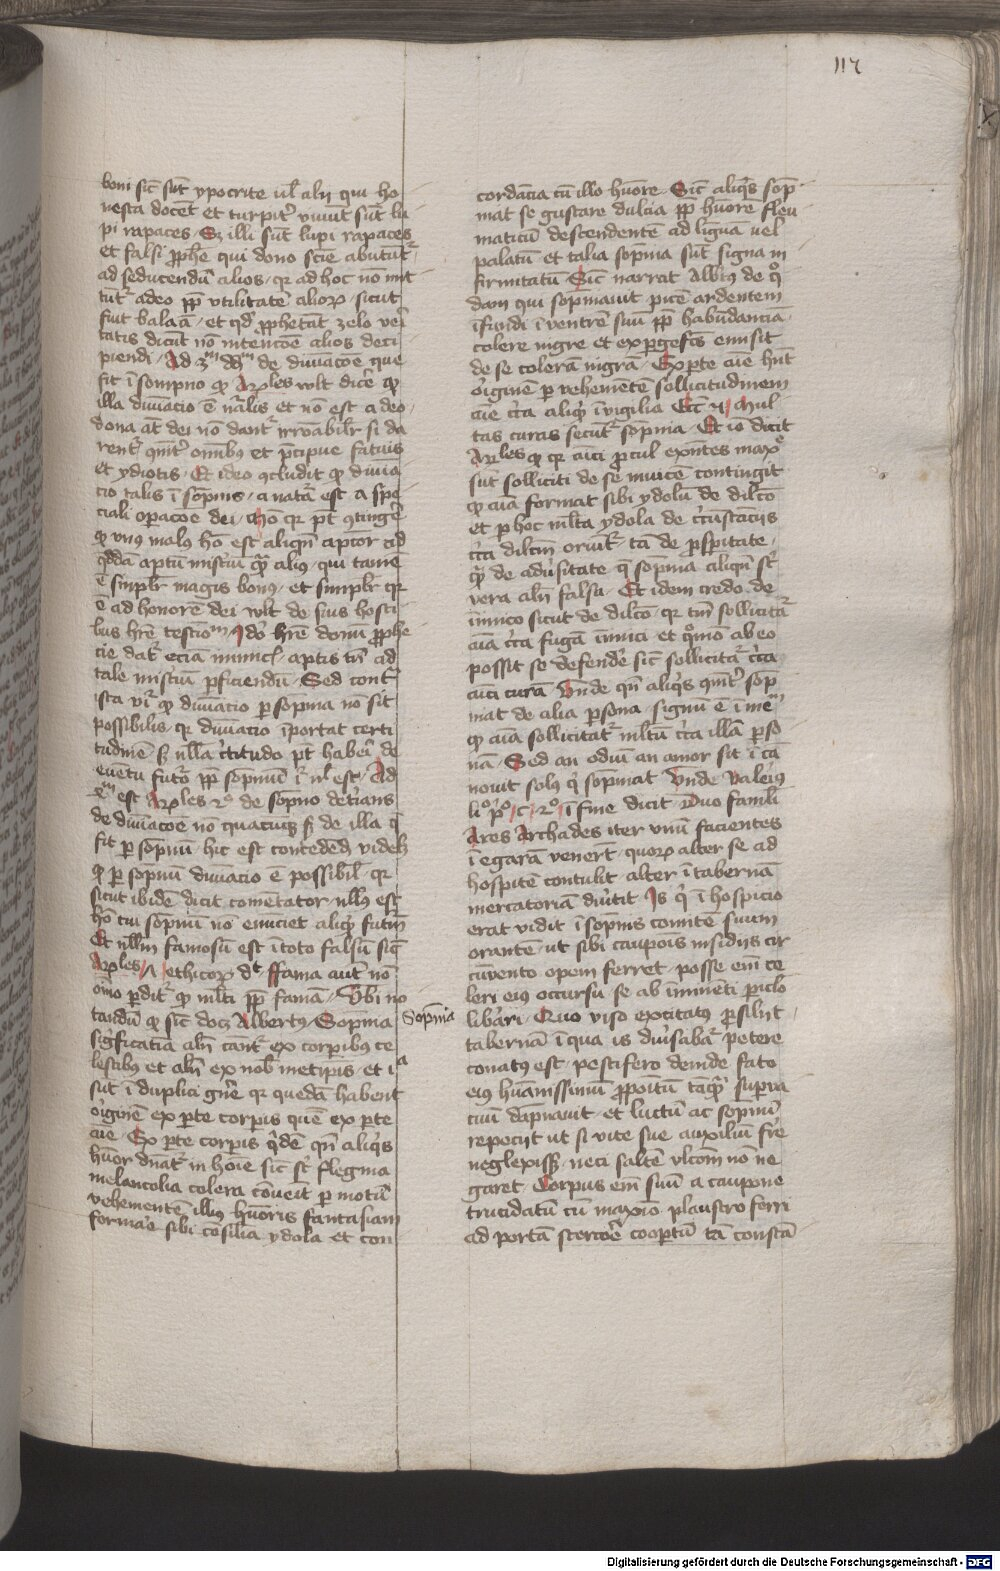 117
boni sic̄ sūt ypocrite ul̄ alij qui ho
nesta docēt et turpit̄ viuūt sūt lu
pi rapaces Sꝫ illi sūt lupi rapaces
et falsi ꝓphē qui dono scīe abutūt᷑
ad seducendū alios qꝛ ad hoc nō mit
tūt᷑ adeo ꝓp̄ vtilitatē alioꝝ sicut
fuit balaā et qd̄ ꝓphetāt zelo veri
tatis dicūt nō intencōe alios deci
piendi Ad 3ᵐ dd̄ᵐ de diuiacōe que
fit ī sompno ꝙ Arꝰles vlt dicē ꝙ
illa diuiacio ē nr̄alis et nō est a deo
dona at̄ dei nō dant᷑ irroābilr̄ si da
rent᷑ qm̄t̄ om̄ibꝰ et p̄cipue fatuis
et ydiotis Et ideo ꝯcludit ꝙ diuia
cio talis ī sōpnis a natā est a spe
ciali oꝑacōe dei
ꝙ vnꝰ malꝰ hō est aliqn̄ aptior ad
qd̄dā aptū mist̄iū qꝫ̄ aliꝰ qui tamē
ē simplr̄ magis bonꝰ et simplr̄ qꝛ
ē ad honorē dei vlt de suis hosti
bus hr̄e testīoᵐ Idō hr̄e donū ꝓphe
cie dat᷑ eciā inimic̄ aptis tn̄ ad
tale mist̄iū ꝑficiendū Sed cont᷑
ista vr̄ ꝙ diuiacio ꝑ sopnia nō sit
possibilis qꝛ diuiacio īportat certi
tudinē sꝫ nll̄a c̄titudo pt̄ haberi de
euētu futō ꝓp̄ sopniū
est Arꝰles 2ᵒ de sōpno det̄ians
de diuiacōe nō quacūqꝫ sꝫ de illa q̄
fit ꝑ sōpniū hic est concedēd̄ videlꝫ
ꝙ ꝑ sōpniū diuiacio ē possibil̄ qꝛ
sicut ibidē dicit cōmētator nllꝰ est
hō cui sōpniū nō enūciet aliqd̄ futūm
Et nllm̄ famosū est ī toto falsū sic̄
Arꝰles ethicoꝝ dᵗ ffama aut nō
oīno ꝑdit᷑ ꝙ mlt̄i ꝓp̄ famāt Vbi no
tandū ꝙ sic̄ docꝫ Albertꝰ Sopnia
sigīficatīa alr̄i cānt᷑ ex corꝑibꝰ ce
lestibꝰ et alr̄i ex nob̄ metipīs et ia
sūt ī duplici gn̄e qꝛ quedā habent
oiginē ex ꝑte corꝑis quedā ex ꝑte
aīe Ex ꝑte corꝑis qd̄ē qn̄ aliqīs
hūor dn̄at᷑ in hoīe sic̄ st̄ flegma
melancolia colera cōueit ꝑ motū
vehementē illiꝰ hūoris fantasiam
formāe sibi cōsilia ydola et con
Sopnia
cordācia cū illo hūore Sic̄ aliqīs sop
niat se gustare dulcia ꝓp̄ hūorē fleu
maticū descendentē ad liguā uel
palatū et talia sopnia sūt signa in
firmitatū Sic̄ narrat Albtꝰ de qᵒ
dam qui sopniauit picē ardentem
īfundi ī ventrē suū ꝓp̄ habūdancia
colere nigre et exꝑgefcs̄ emisit
de se colerā nigrā Ex ꝑte aīe hn̄t
oiginē ꝑ vehemētē sollicitudinem
aīe c̄ca aliqd̄ ī vigilia Mul
tas curas secūt᷑ sopnia Et iō dicit
Arꝰles ꝙ qꝛ aīci ꝓcul exn̄tes maxᵉ
sūt solliciti de se inuicē contingit
ꝙ aīa format sibi ydolū de dilcō
et ꝑ hoc mlta ydola de c̄cūstāciis
c̄ca dilcm̄ oriūt᷑ tā de ꝓsꝑitate
qꝫ̄ de adūsitate q̄ sopnia aliqn̄ st̄
vera alr̄i falsa Et idem credo de
inimico sicut de dilcō qꝛ tm̄ sollicitat᷑
aīa c̄ca fugā inimici et qᵒmō ab eo
possit se defendē sic̄ sollicitat᷑ c̄ca
aīci curā Vnde qn̄ aliqīs qm̄t̄ sōp
niat de alia ꝑsona signū ē
ꝙ aīa sollicitat᷑ mltū c̄ca illā ꝑso
nā Sed an odiū an amor sit ī cā
nouit solꝰ q̄ sopniat Vnde Valeīꝰ
liᵒ pᵒ c 2ᵒ ī fine dicit Duo famili
Ares Archades iter vnū facientes
ī egarā venerūt quoꝝ alter se ad
hospitē contulit alter ī tabernā
mercatoriā diūtit Is q̄ ī hospicio
erat vidit ī sōpnis comitē suum
orantē ut sibi caupōis insidiis cir
cūuento opem ferret posse eīn ce
leri eiꝰ occursu se ab īminēti ꝑiclo
libāri Quo viso excitatꝰ ꝓsiliit
tabernā ī qua is diūsabat᷑ petere
conatꝰ est pestifero deinde fato
eiꝰ hūanissimū ꝓpoītū tāqꝫ̄ suꝑua
cuū dāpnauit et lectū ac sopniū
repecijt ut si vite sue auxiliū fr̄e
neglexissꝫ neci saltē vlcōm nō ne
garet Corpus eīn suū a caupone
trucidatū cū maxīo plaustro ferri
ad portā stercōe cooptū tā constā
Digitalisierung gefördert durch die Deutsche Forschungsgemeinschaft - DFG